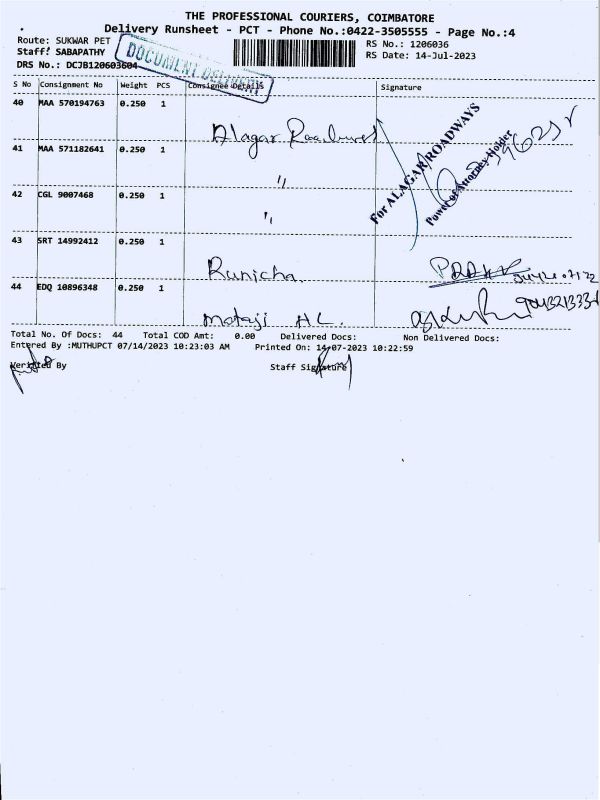 THE PROFESSIONAL COURIERS, COIMBATORE
Delivery Runsheet - PCT - Phone No.:0422-3505555 - Page No.:4
Route: SUKWAR PET
RS No.: 1206036
Staff: SABAPATHY
RS Date: 14-Jul-2023
DRS No.: DCJB120603604
DOCUMENT DELIVERY
S No Consignment No Weight PCS Consignee Details Signature
40 MAA 570194763 0.250 1
Alagar
For ALAGAR ROADWAYS
Power of Attorney Holder
41 MAA 571182641 0.250 1
"
42 CGL 9007468 0.250 1
"
43 SRT 14992412 0.250 1
Runicha
44 EDQ 10896348 0.250 1
mataji H.C.
Total No. Of Docs: 44 Total COD Amt: 0.00 Delivered Docs: Non Delivered Docs:
Entered By :MUTHUPCT 07/14/2023 10:23:03 AM Printed On: 14-07-2023 10:22:59
Verified By Staff Signature